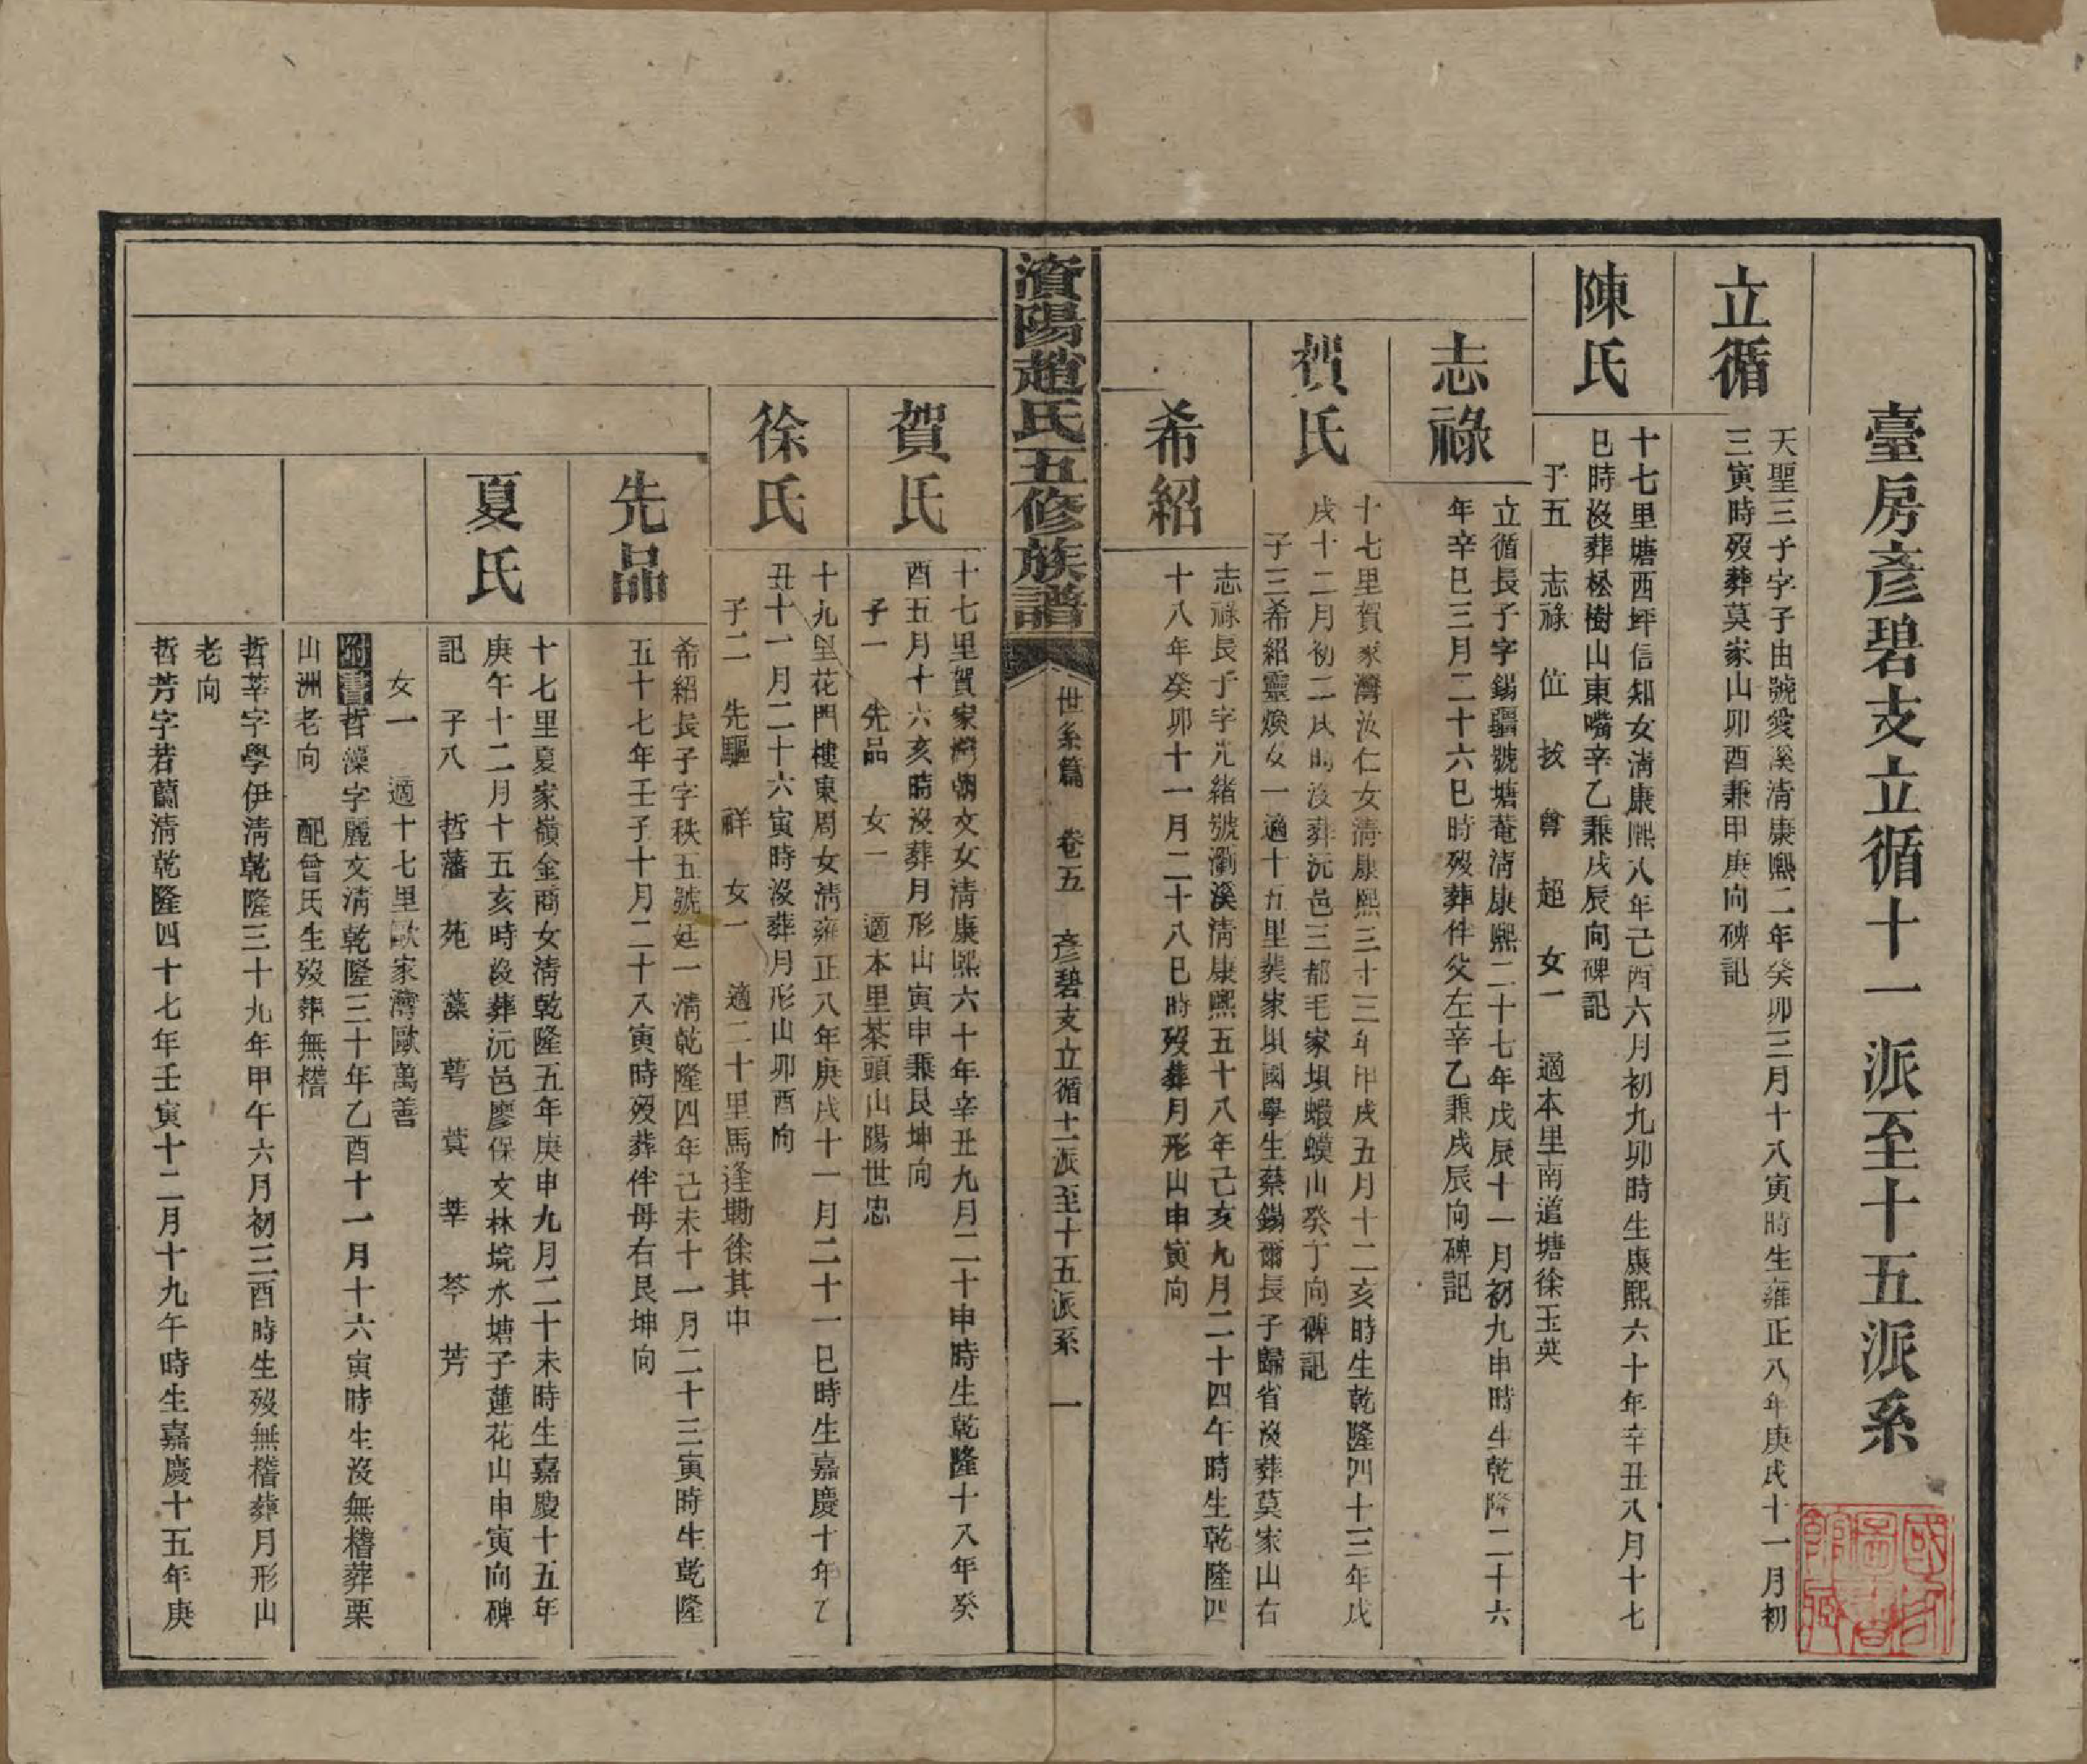 臺房彥碧支立循十一派至十五派系
立循
天聖三子字子由號愛溪清康熙二年癸卯三月十八寅時生雍正八年庚戌十一月初
三寅時歿葬莫家山卯酉兼甲庚向碑記
陳氏
十七里塘西坪信知女清康熙八年己酉六月初九卯時生康熙六十年辛丑八月十七
巳時沒葬松樹山東嘴辛乙兼戌辰向碑記
子五 志祿 位 拔 尊 超 女一 適本里南道塘徐玉英
志祿
立循長子字錫疆號塘菴清康熙二十七年戊辰十一月初九申時生乾隆二十六
年辛巳三月二十六巳時歿葬伴父左辛乙兼戌辰向碑記
賀氏
十七里賀家灣汝仁女清康熙三十三年甲戌五月十二亥時生乾隆四十三年戊
戌十二月初二辰時沒葬沅邑三都毛家垻蝦蟆山癸丁向碑記
子三希紹靈煥女一適十五里裴家垻國學生蔡錫爾長子歸省沒葬莫家山右
希紹
志祿長子字光緒號瀏溪清康熙五十八年己亥九月二十四午時生乾隆四
十八年癸卯十一月二十八巳時歿葬月形山申寅向
濱陽趙氏五修族譜 世系篇 卷五 彥碧支立循十一派至十五派系 一
賀氏
十七里賀家灣朝文女清康熙六十年辛丑九月二十申時生乾隆十八年癸
酉五月十六亥時沒葬月形山寅申兼艮坤向
子一 先品 女一 適本里茶頭山陽世忠
徐氏
十九里花門樓東周女清雍正八年庚戌十一月二十一巳時生嘉慶十年乙
丑十一月二十六寅時沒葬月形山卯酉向
子二 先驅 祥 女一 適二十里馬逢塅徐其中
先品
希紹長子字秩五號廷一清乾隆四年己未十一月二十三寅時生乾隆
五十七年壬子十月二十八寅時歿葬伴母右艮坤向
夏氏
十七里夏家嶺金商女清乾隆五年庚申九月二十未時生嘉慶十五年
庚午十二月十五亥時沒葬沅邑廖保文林垸水塘子蓮花山申寅向碑
記 子八 哲藩 苑 藻 萼 蓂 莘 苓 芳
女一 適十七里歐家灣歐萬善
附書哲藻字麗文清乾隆三十年乙酉十一月十六寅時生沒無稽葬栗
山洲老向 配曾氏生歿葬無稽
哲莘字學伊清乾隆三十九年甲午六月初三酉時生歿無稽葬月形山
老向
哲芳字若蘭清乾隆四十七年壬寅十二月十九午時生嘉慶十五年庚